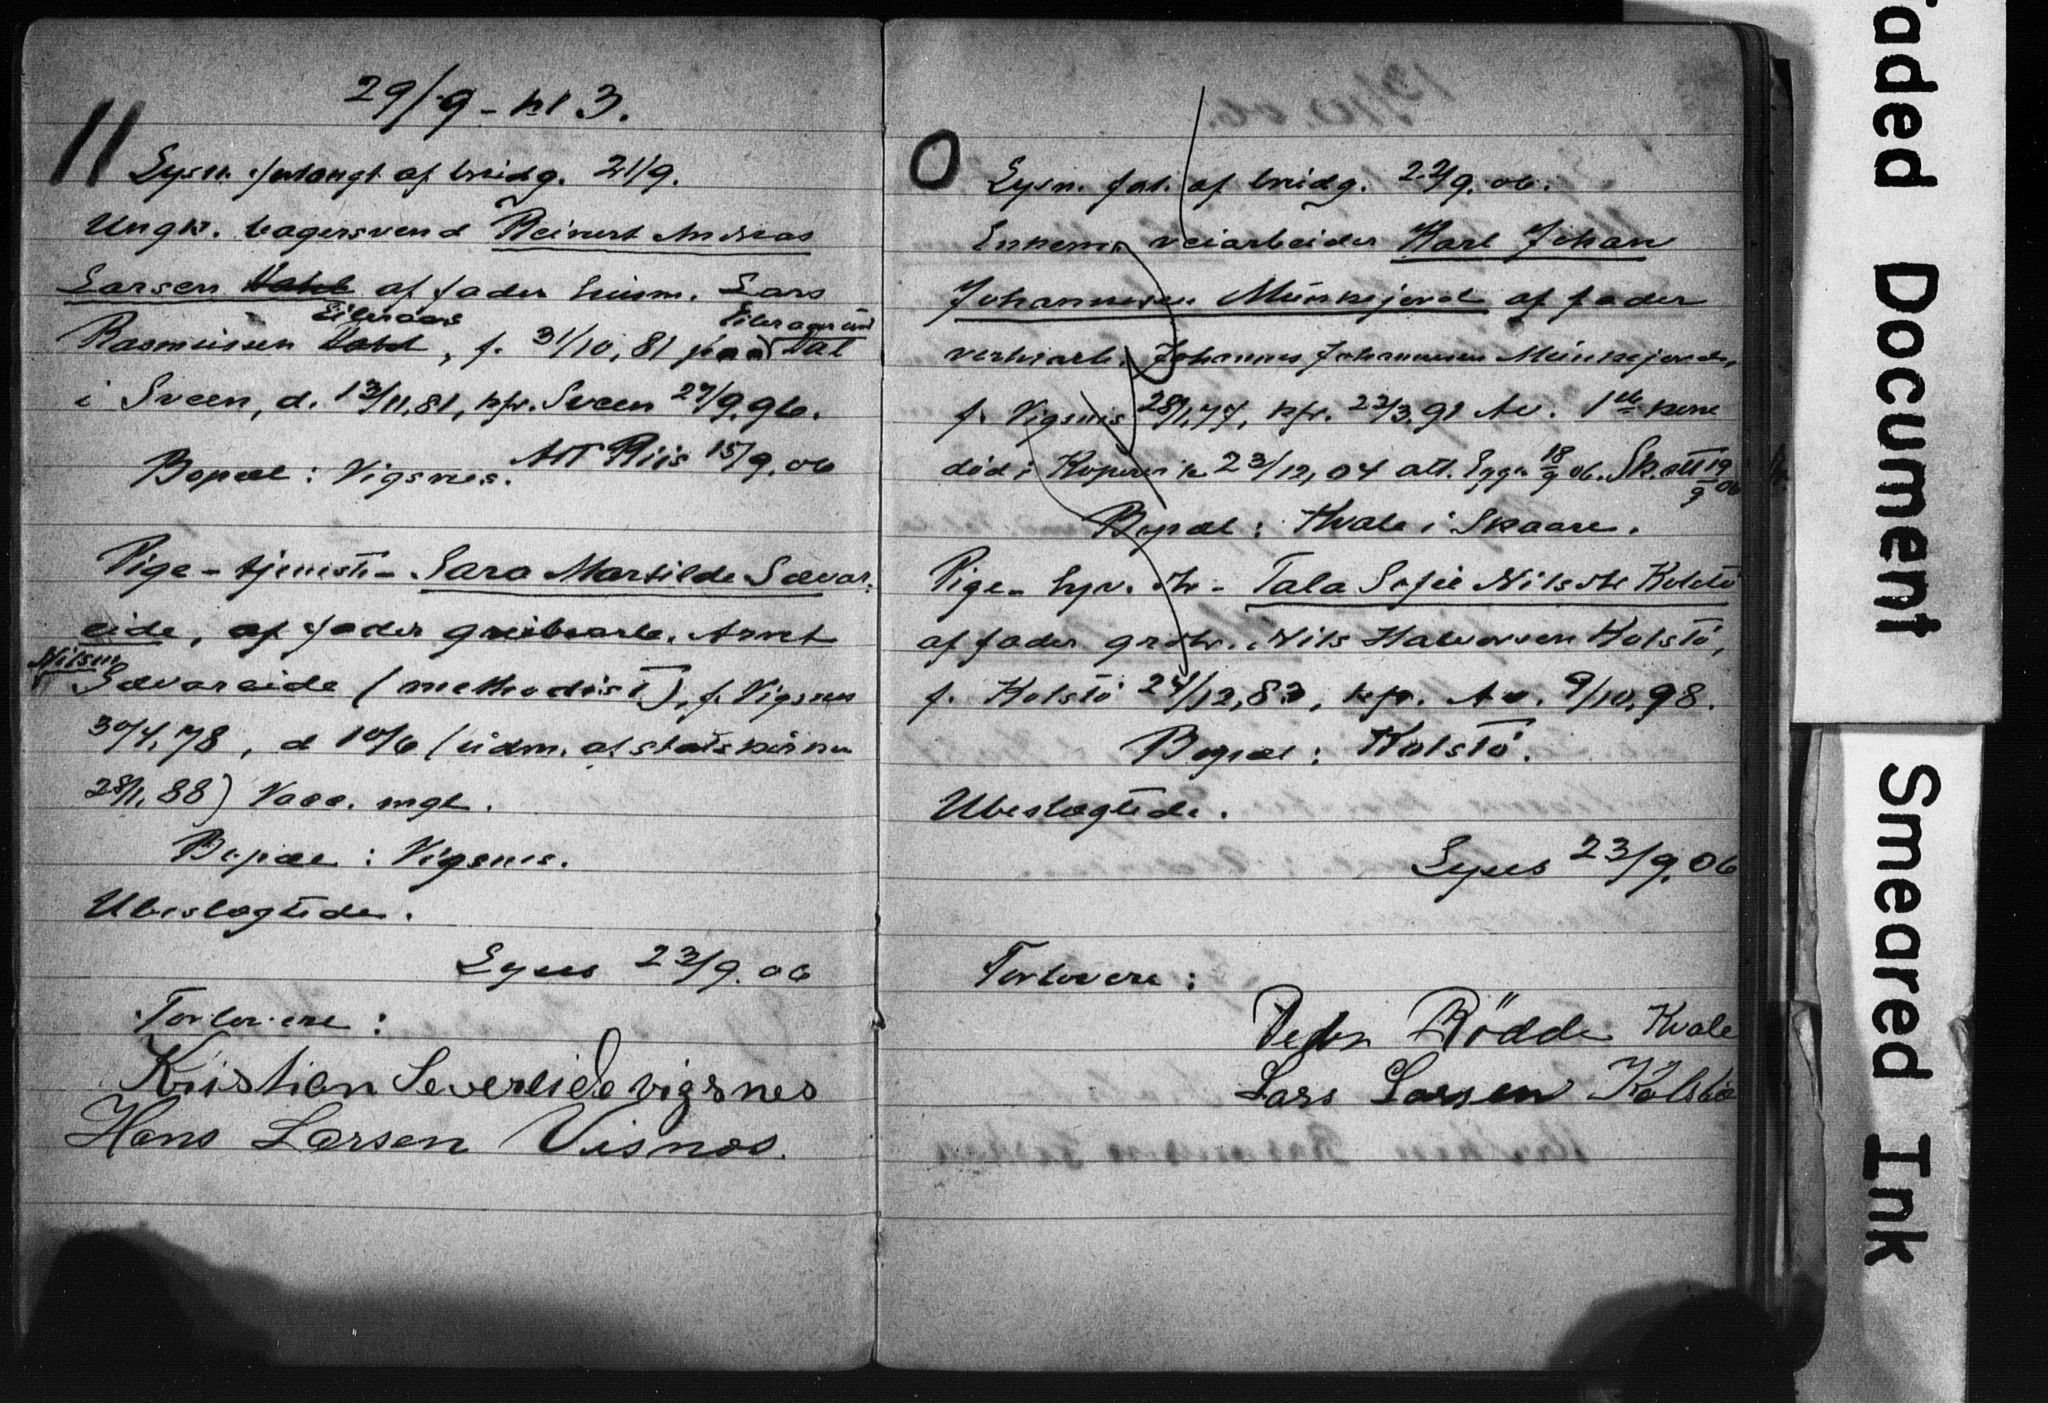 29/9 - kl 3.
11
Lysn. forlangt af brudg. 21/9.
Ungk. bagersvend Reinert Andreas
Larsen af fader husm. Lars
Rasmussen, f. 31/10, 81 paa Dal
i Sveen, d. 13/11, 81, kfr. Sveen 27/9. 96.
Bopæl: Vigsnes. Att Riis 15/9. 06
Pige - tjeneste - Sara Martilde Sævar-
eide, af fader grubearb. Arnt
Nilsen
Sævareide (methodist), f. Vigsnes
30/4, 78, d 10/6 (udm. af statskirken
28/1, 88) Vacc. mgl.
Bopæl: Vigsnes.
Ubeslægtede.
Lyses 23/9. 06
Forlovere:
Kristian Severeide vigsnes
Hans Larsen Visnes.
0
Lysn. forl. af brudg. 22/9. 06.
Enkem. veiarbeider Karl Johan
Johannesen Munkejord af fader
verksarb. Johannes Johannesen Munkejord,
f. Vigsnes 28/1, 77, kfr. 22/3. 91 Av. 1ste kone
død i Kopervik 23/12, 04 att. 18/9 06. Sk. att 19/9 06
Bopæl: Kvale i Skaare.
Pige - Tala Sofie Nilsdtr Kolstö
af fader grdbr. Nils Halvorsen Kolstö,
f. Kolstö 24/12, 83, kfr. Av. 9/10, 98.
Bopæl: Kolstö.
Ubeslægtede.
Lyses 23/9. 06
Forlovere:
Peder Rödde Kvale
Lars Larsen Kolstö
Faded Document
Smeared Ink